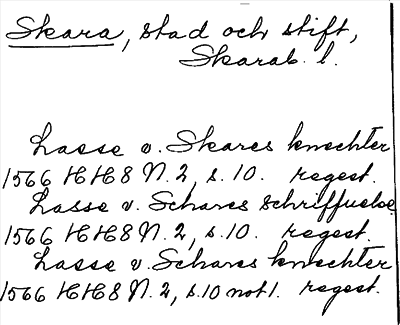 Skara, stad och stift,
Skarab. l.
Lasse v. Skares knechter
1566 HH8 N. 2, s. 10. regest.
Lasse v. Schares schriffuelse
1566 HH8 N. 2, s. 10. regest.
Lasse v. Schares knechter
1566 HH8 N. 2, s. 10 not 1. regest.